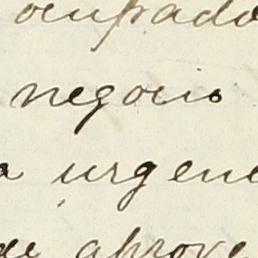 ocupado
negocio
a urgenc
de aprove